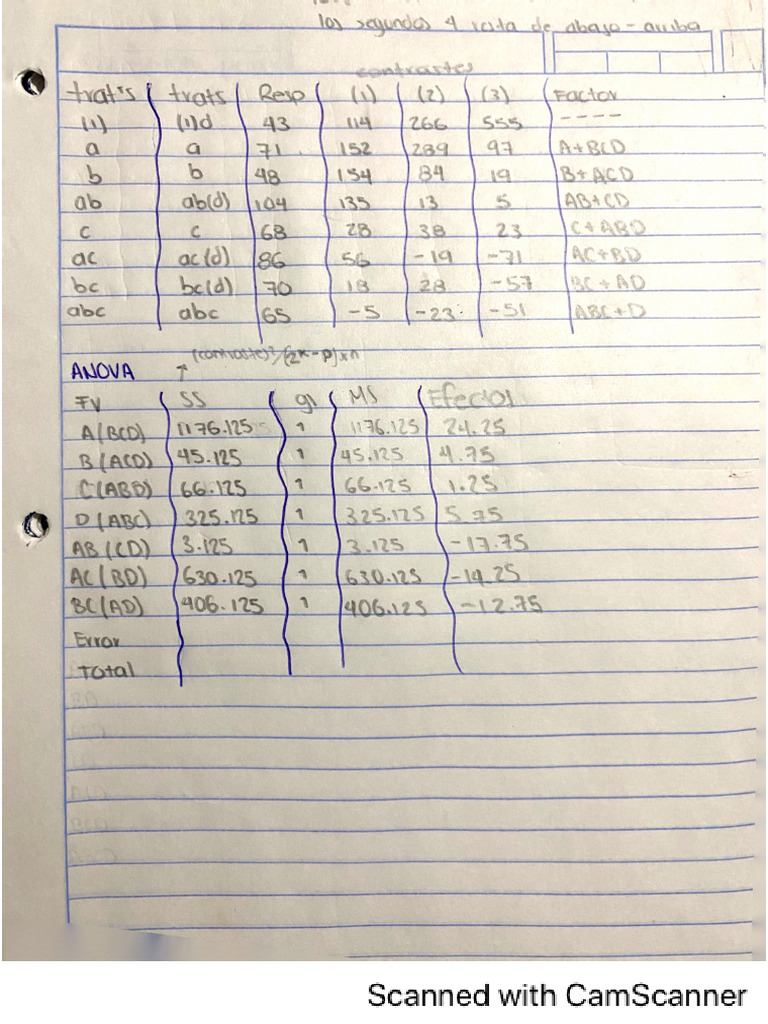 los segundos 4 resta de abajo - arriba
contrastes
trat's trats Resp (1) (2) (3) Factor
(1) (1)d 43 114 266 555 ----
a a 71 152 289 97 A+BCD
b b 48 154 84 19 B+ACD
ab ab(d) 104 135 13 5 AB+CD
c c 68 28 38 23 C+ABD
ac ac(d) 86 56 -19 -71 AC+BD
bc bc(d) 70 18 28 -57 BC+AD
abc abc 65 -5 -23 -51 ABC+D
(contraste)²/(2k-p)xn
ANOVA
FV SS gl MS Efectos
A(BCD) 1176.125 1 1176.125 24.25
B(ACD) 45.125 1 45.125 4.75
C(ABD) 66.125 1 66.125 1.25
D(ABC) 325.125 1 325.125 5.75
AB(CD) 3.125 1 3.125 -17.75
AC(BD) 630.125 1 630.125 -14.25
BC(AD) 406.125 1 406.125 -12.75
Error
Total
Scanned with CamScanner